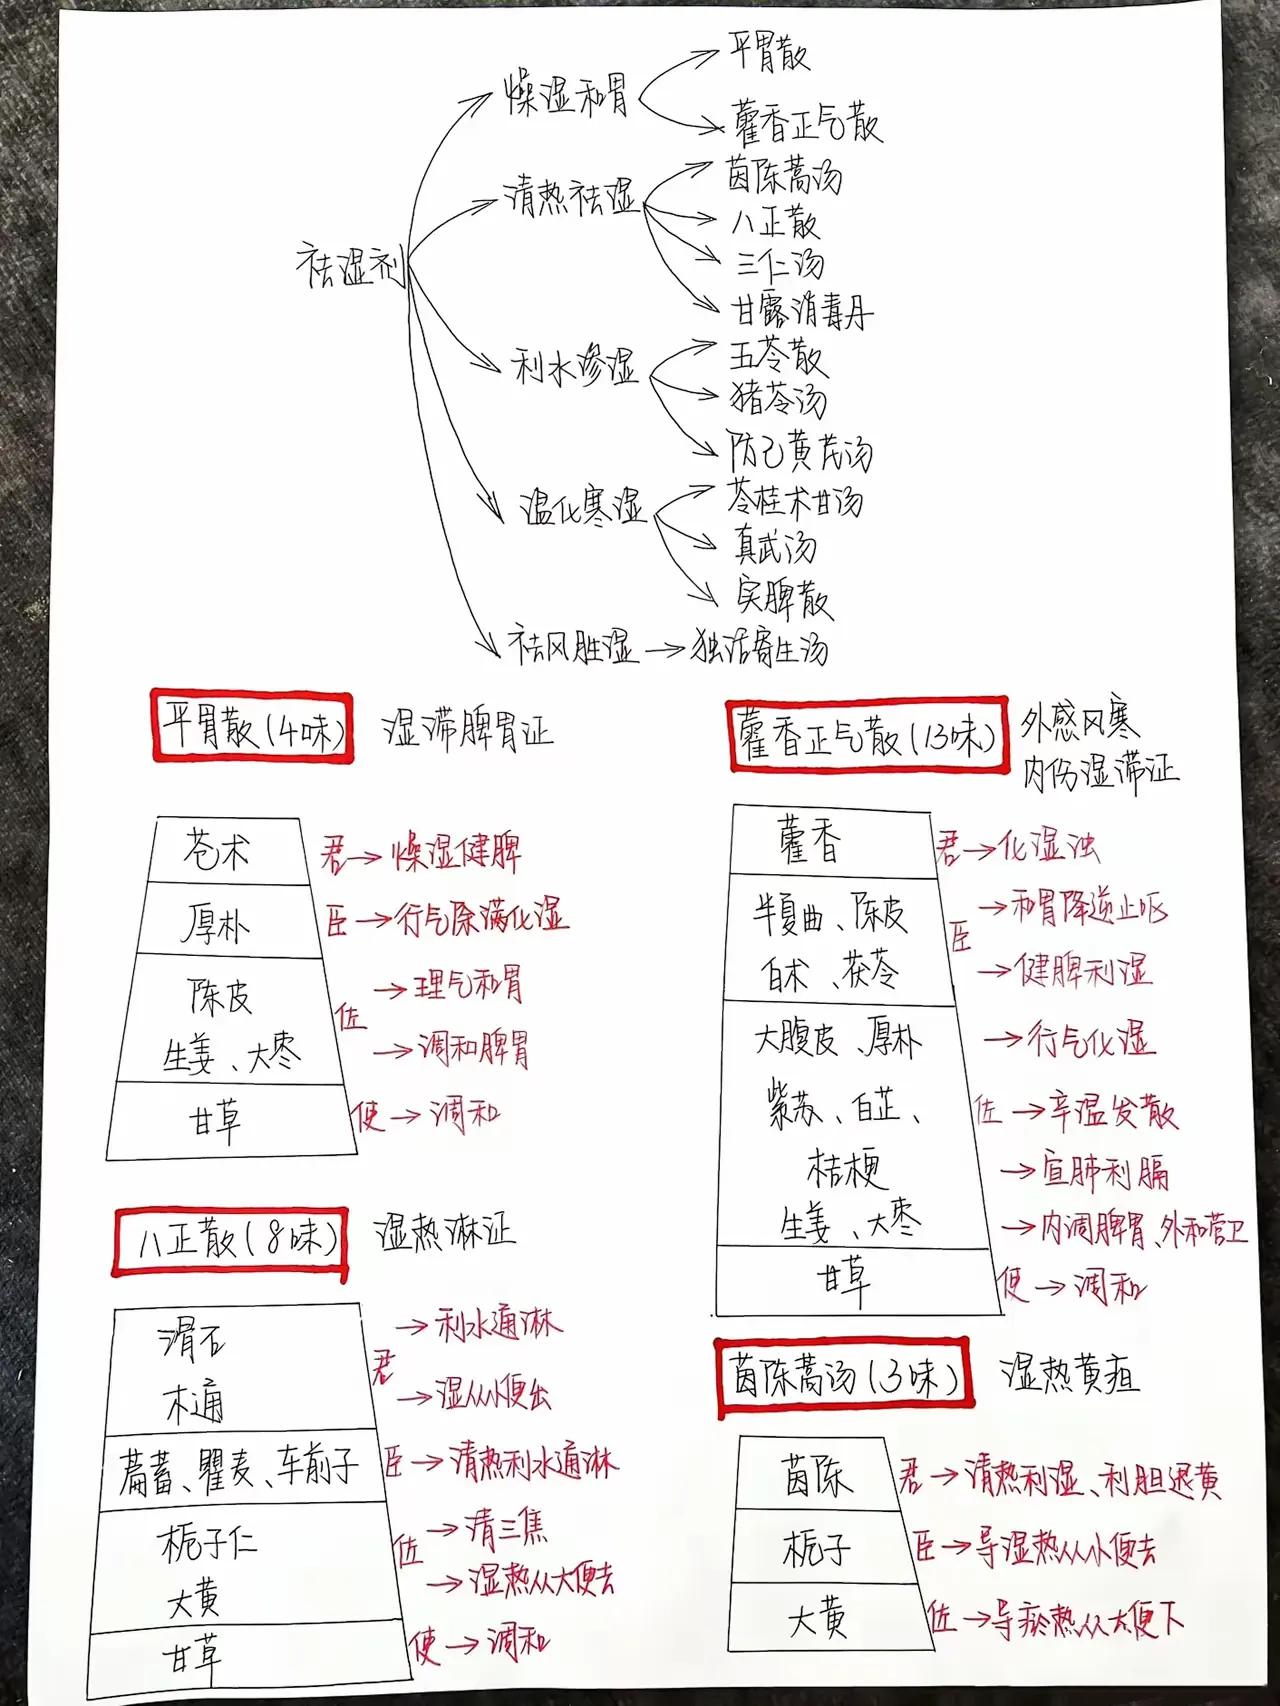 祛湿剂
燥湿和胃
平胃散
藿香正气散
清热祛湿
茵陈蒿汤
八正散
三仁汤
甘露消毒丹
利水渗湿
五苓散
猪苓汤
防己黄芪汤
温化寒湿
苓桂术甘汤
真武汤
实脾散
祛风胜湿→独活寄生汤
平胃散(4味) 湿滞脾胃证
苍术 君→燥湿健脾
厚朴 臣→行气除满化湿
陈皮 →理气和胃
佐
生姜、大枣 →调和脾胃
甘草 使→调和
藿香正气散(13味) 外感风寒
内伤湿滞证
藿香 君→化湿浊
半夏曲、陈皮 →和胃降逆止呕
臣
白术、茯苓 →健脾利湿
大腹皮、厚朴 →行气化湿
紫苏、白芷、 佐→辛温发散
桔梗 →宣肺利膈
生姜、大枣 →内调脾胃、外和营卫
甘草 使→调和
八正散(8味) 湿热淋证
滑石 →利水通淋
君
木通 →湿从小便出
萹蓄、瞿麦、车前子 臣→清热利水通淋
栀子仁 →清三焦
佐
大黄 →湿热从大便去
甘草 使→调和
茵陈蒿汤(3味) 湿热黄疸
茵陈 君→清热利湿、利胆退黄
栀子 臣→导湿热从小便去
大黄 佐→导瘀热从大便下